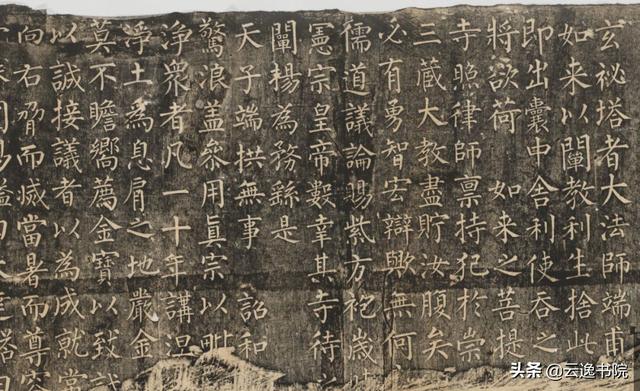 玄祕塔者大法師端甫
如来以闡教利生捨此
即出囊中舍利使吞之
將欲荷 如来之菩提
寺照律師禀持犯於崇
三藏大教盡貯汝腹矣
必有勇智宏辯歟無何
儒道議論賜紫方袍歲
憲宗皇帝數幸其寺待
闡揚為務繇是
天子端拱無事 詔和
驚浪盖參用真宗以毗
净衆者凡一十年講涅
浄土為息肩之地嚴金
莫不瞻嚮薦金寶以致
以誠接議者以為成就常
向右脅而滅當暑而尊容
头条 @云逸书院